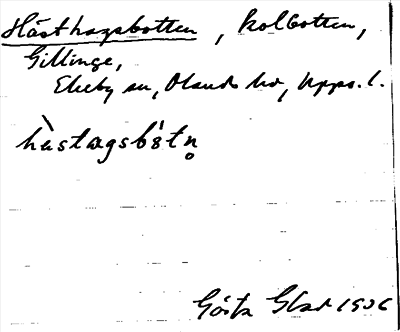 Hästhagsbotten, kolbotten,
Gillinge,
Ekeby sn, Olands hd, Upps. l.
hàstagsbåtn̥
Gösta Glad 1926